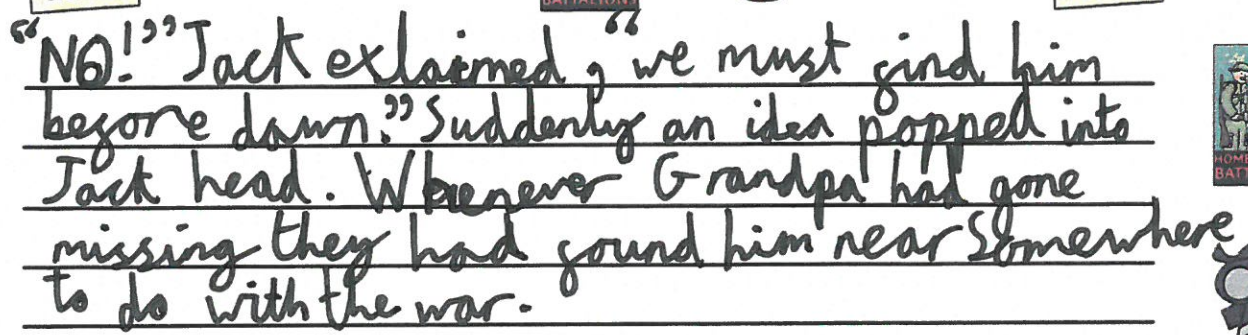 BATTALIONS
“NO!” Jack exclaimed, “we must find him
before dawn.” Suddenly an idea popped into
Jack head. Whenever Grandpa had gone
missing they had found him near Somewhere
to do with the war.
HOME
BATT